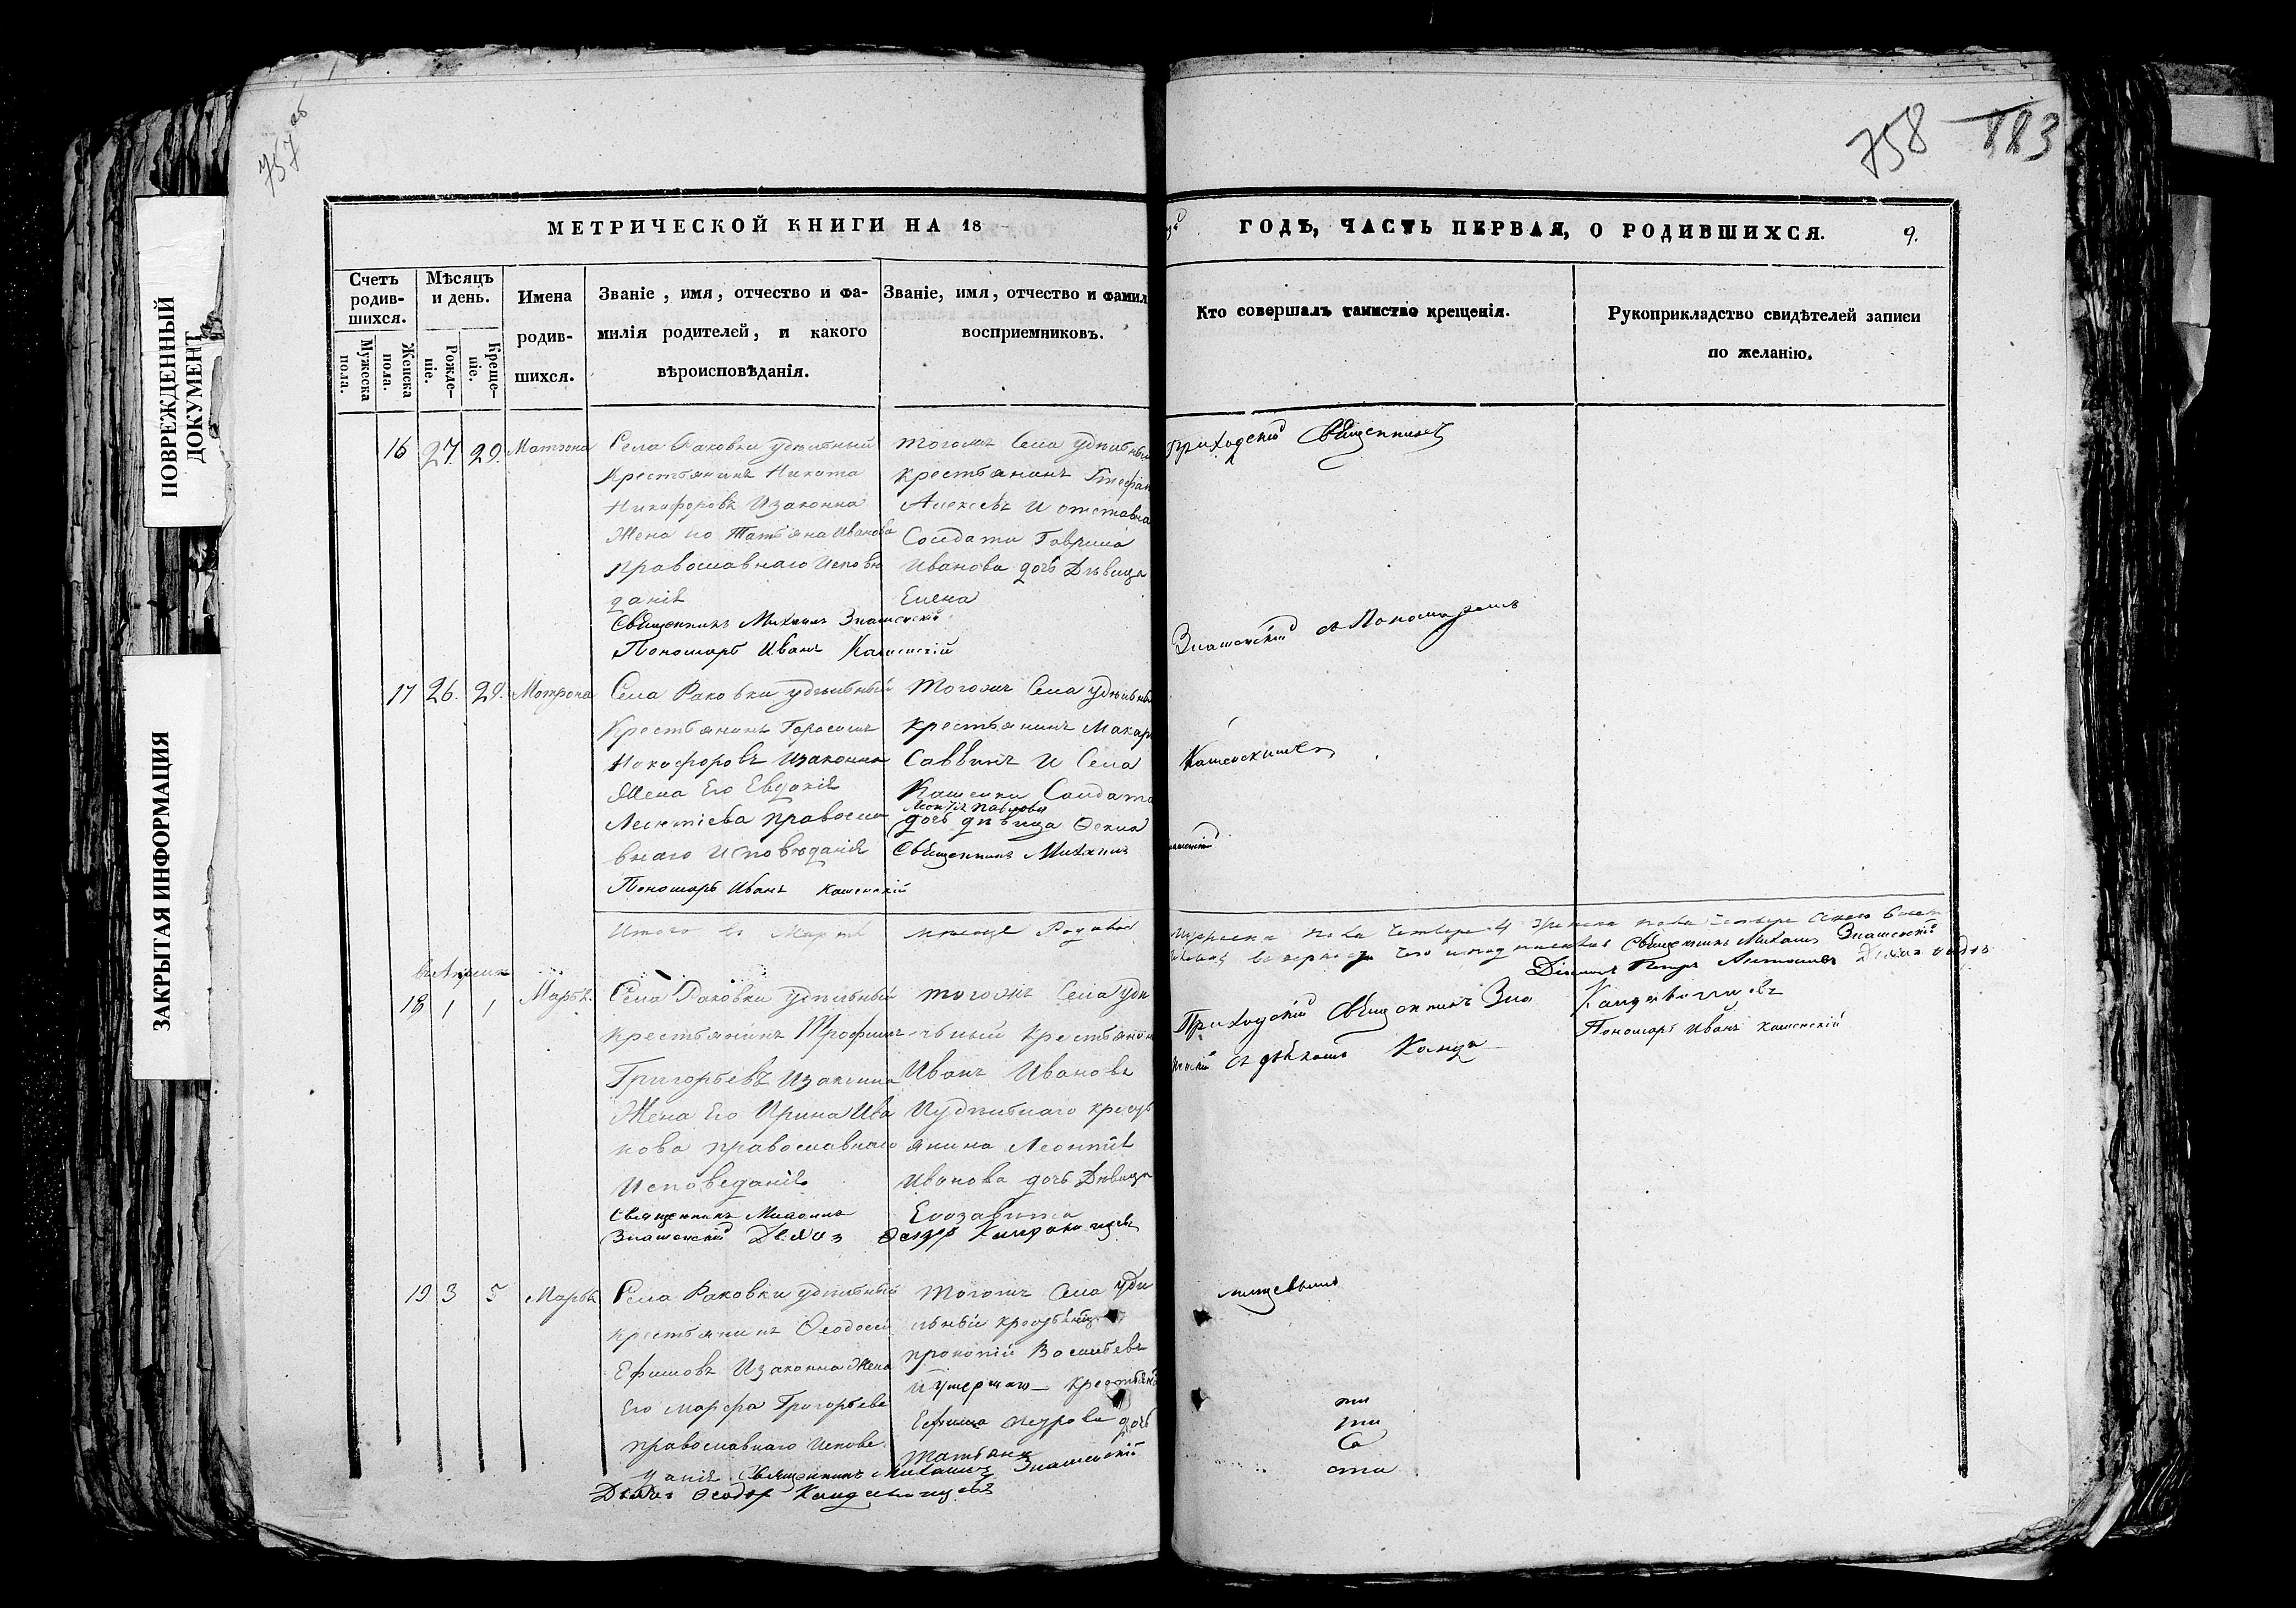 757 об
758 183
ПОВРЕЖДЕННЫЙ
ДОКУМЕНТ
ЗАКРЫТАЯ ИНФОРМАЦИЯ
МЕТРИЧЕСКОЙ КНИГИ НА 18
ГОДЪ, ЧАСТЬ ПЕРВАЯ, О РОДИВШИХСЯ. 9.
Счетъ
родив-
шихся.
Мужеска
пола.
Женска
пола.
Мѣсяцъ
и день.
Рожде-
ніе.
Креще-
ніе.
Имена
родив-
шихся.
Званіе, имя, отчество и фа-
милія родителей, и какого
вѣроисповѣданія.
Званіе, имя, отчество и фамил
восприемниковъ.
Кто совершалъ таинство крещенія.
Рукоприкладство свидѣтелей записи
по желанію.
16 27. 29. Матрона
Села Раковки удѣльный
Крестьянинъ Никита
Никифоровъ Изаконна
Жена его Татьяна Иванова
православнаго Исповѣ
данія
Священникъ Михаилъ Знаменскій
Пономарь Иванъ Каменскій
тогожъ Села удѣльный
крестьянинъ Стефан
Алексѣвъ И отставна
Солдата Гаврила
Иванова дочь Дѣвица
Елена
Приходскій Священникъ
Знаменскій съ Пономаремъ
Каменскимъ
17 26. 29. Матрона
Села Раковки удѣльный
Крестьянинъ Герасимъ
Никифоровъ Изаконна
Жена Его Евдокія
Леонтіева православ
наго Исповѣданія
Пономарь Иванъ Каменскій
Тогожъ Села удѣльный
крестьянинъ Макар
Саввинъ И Села
Каменки Солдата
Леонтія Павлова
дочь дѣвица Фекла
Священникъ Михаилъ
Итого въ Мартѣ мѣсяце
Священникъ Михаилъ Знаменскій
въ Апрелѣ
18 1 1 Марья
Села Раковки удѣльный
крестьянинъ Трофимъ
Григорьевъ Изаконна
Жена Его Ирина Ива
нова православнаго
Исповеданія
Священникъ Михаилъ
Знаменскій
тогожъ Села удѣ
льный крестьянин
Иванъ Ивановъ
И удѣльнаго кресть
янина Леонтія
Иванова дочь Дѣвица
Елизавета
Приходскій Священникъ Зна
Пономарь Иванъ Каменскій
19 3 5 Марья
Села Раковки удѣльный
крестьянинъ Ѳеодосій
Ефимовъ Изаконна Жена
Его Марфа Григорьева
православнаго Испове
данія Священникъ Михаилъ Знаменскій
Тогожъ Села удѣ
льный
прокопій Васильевъ
И умершаго крестьян
Ефима Петрова дочь
Татьяна